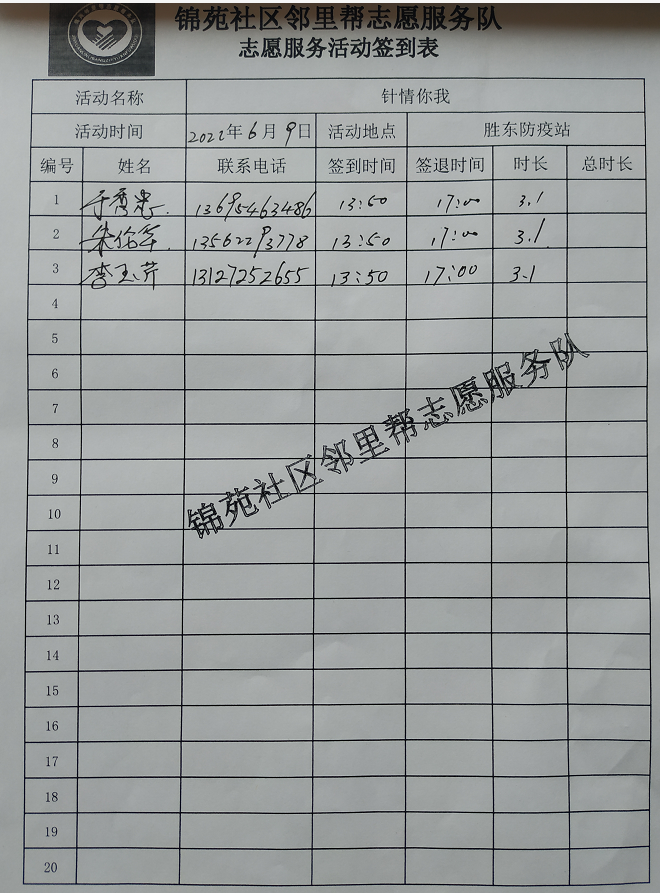 锦苑社区邻里帮志愿服务队
志愿服务活动签到表
活动名称 针情你我
活动时间 2022年6月9日 活动地点 胜东防疫站
编号 姓名 联系电话 签到时间 签退时间 时长 总时长
1 于秀忠. 13695463486 13:50 17:00 3.1
2 朱伦华. 13562293778 13:50 17:00 3.1
3 李玉芹 13127252655 13:50 17:00 3.1
4
5
6
7
8
9
10
11
12
13
14
15
16
17
18
19
20
锦苑社区邻里帮志愿服务队